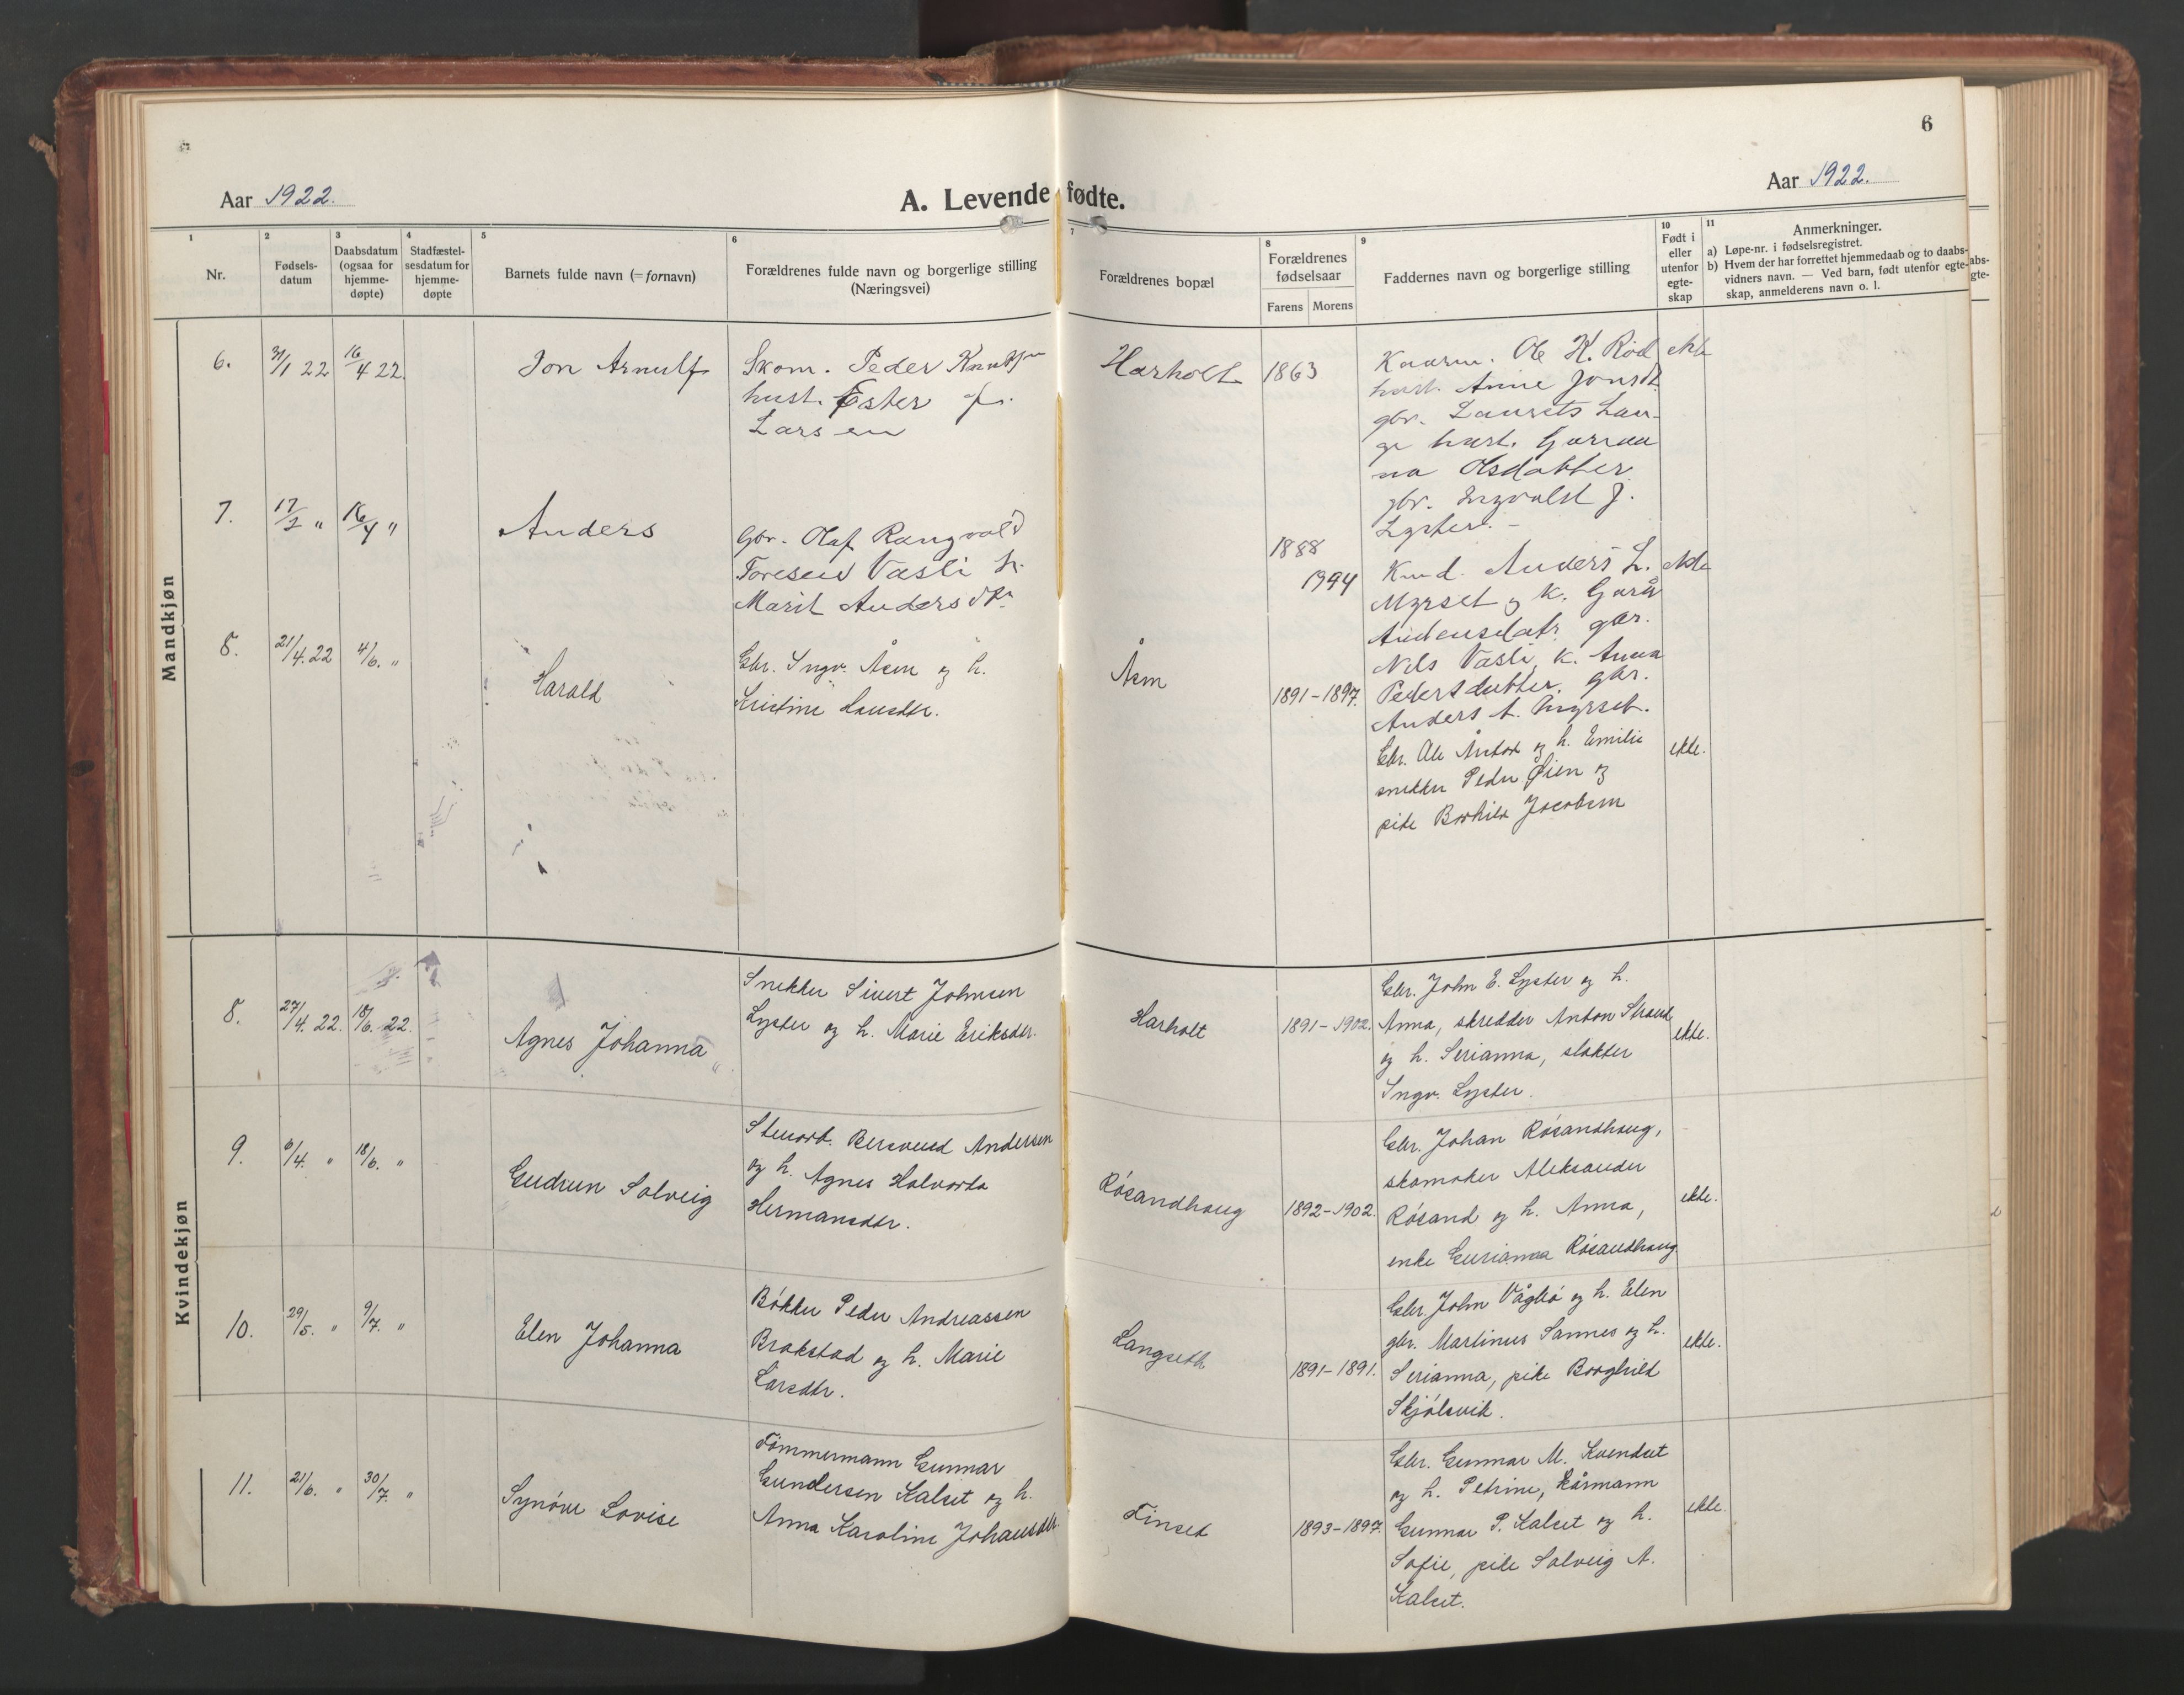 6
Aar 1922.
A. Levende fødte.
Aar 1922.
1
Nr.
2
Fødsels-
datum
3
Daabsdatum
(ogsaa for
hjemme-
døpte)
4
Stadfæstel-
sesdatum for
hjemme-
døpte
5
Barnets fulde navn (= fornavn)
6
Forældrenes fulde navn og borgerlige stilling
(Næringsvei)
7
Forældrenes bopæl
8
Forældrenes
fødselsaar
Farens Morens
9
Faddernes navn og borgerlige stilling
10
Født i
eller
utenfor
egte-
skap
11
Anmerkninger.
a) Løpe-nr. i fødselsregistret.
b) Hvem der har forrettet hjemmedaab og to daabs-
vidners navn. — Ved barn, født utenfor egte-
skap, anmelderens navn o. l.
Mandkjøn
6. 31/1 22 16/4 22.
Jon Arnulf
Skom. Peder
hust. Ester
Larsen
Harholt
1863
Ole K. Rød
hust. Anne Jonsdt.
gbr. Laurets Lan-
ge hust.
na Olsdatter
gbr. Ingvald J.
Lyster. -
ekte
7. 17/2 " 16/4 "
Anders
Gbr. Olaf Rangvald
Toresen Vasli h.
Marit Andersdtr
1888
1994
Anders L.
Myrset og k. Gurå
gbr.
Nils Vasli, k. Anna
Pedersdatter, gbr.
Anders A. Myrset.
ekte
8. 21/4. 22 4/6. "
Harald
Gbr. Ingv. Åsen og h.
Kristine Hansdtr.
Åsen
1891-1897.
Gbr. Ole og h. Emilie
snekker Peder Øien og
pike Borhild Jacobsen
ekte.
Kvindekjøn
8. 27/4. 22. 18/6. 22.
Agnes Johanna
Snekker Sivert Johnsen
Lyster og h. Marie Eriksdtr.
Harholt
1891-1902.
Gbr. John E. Lyster og h.
Anna, skredder Anton Strand
og h. Serianna, slakter
Ingv. Lyster.
ekte.
9. 6/4. " 18/6. "
Gudrun Solveig
Stenarb. Bersvend Andersen
og h. Agnes Halvorda
Hermansdtr.
Røsandhaug
1892-1902.
Gbr. Johan Røsandhaug,
skomaker Aleksander
Røsand og h. Anna,
enke Gurianna Røsandhaug.
ekte.
10. 29/5. " 9/7. "
Elen Johanna
Bøkker Peder Andreassen
Brakstad og h. Marie
Larsdtr.
Langseth
1891-1891.
Gbr. John Vågbø og h. Elen
gbr. Martinus Sannes og h.
Serianna, pike Borghild
Skjølsvik.
ekte.
11. 21/6. " 30/7. "
Synøve Lovise
Tømmermann Gunnar
Gundersen Kalset og h.
Anna Karoline Johansdtr.
Tinset
1893-1897.
Gbr. Gunnar M. Kvendset
og h. Petrine, kårmann
Gunnar P. Kalset og h.
Sofie, pike Solveig A.
Kalset.
ekte.